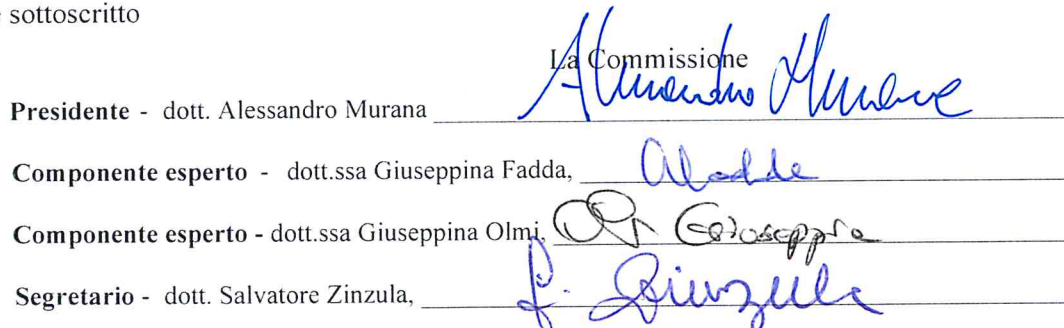 sottoscritto
La Commissione
Presidente - dott. Alessandro Murana Alessandro Murana
Componente esperto - dott.ssa Giuseppina Fadda,
Componente esperto - dott.ssa Giuseppina Olmi, Giuseppina
Segretario - dott. Salvatore Zinzula, S. Zinzula